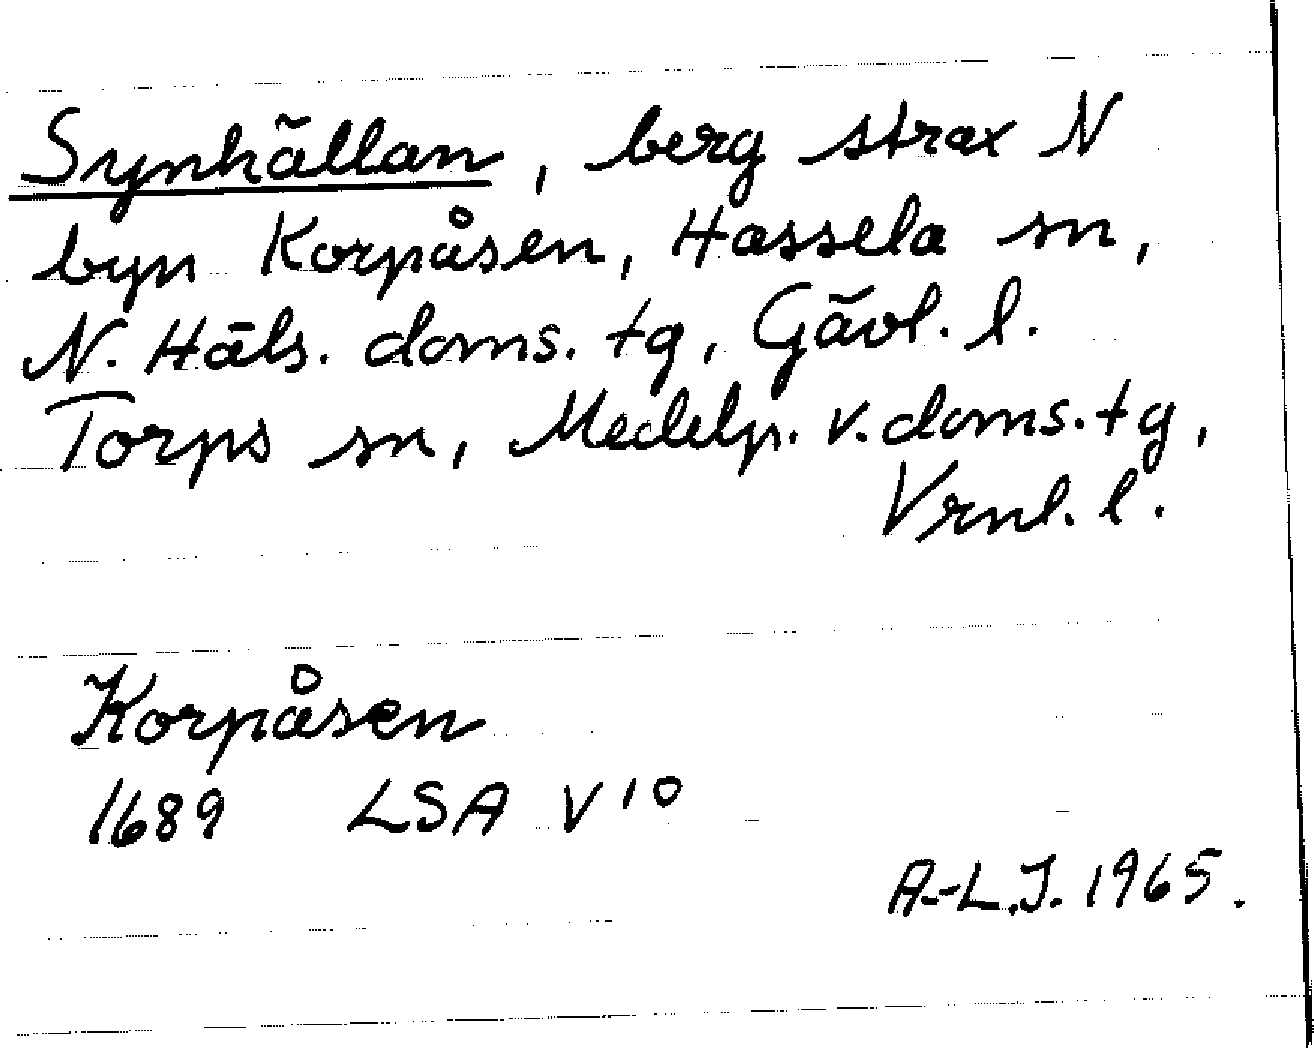 Synhällan, berg strax N
byn Korpåsen, Hassela sn,
N. Häls. doms. tg, Gävl. l.
Torps sn, Medelp. v. doms. tg,
Vrnl. l.
Korpåsen
1689 LSA V¹⁰
A.-L.J. 1965.